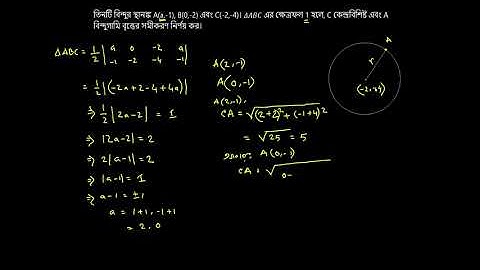 তিনটি বিন্দুর স্থানাঙ্ক A(a,-1), B(0,-2) এবং C(-2,-4)। ΔABC এর ক্ষেত্রফল 1 হলে, C কেন্দ্রবিশিষ্ট এবং A
বিন্দুগামি বৃত্তের সমীকরণ নির্ণয় কর।
ΔABC = 1/2 | a 0 -2 a |
| -1 -2 -4 -1 |
= 1/2 |(-2a+2-4+4a)|
⇒ 1/2 |2a-2| = 1
⇒ |2a-2| = 2
⇒ 2|a-1| = 2
⇒ |a-1| = 1
⇒ a-1 = ±1
a = 1+1, -1+1
= 2, 0
A(2,-1)
A(0,-1)
A(2,-1),
CA = √(2+2)² + (-1+4)²
= √25 = 5
A(0,-1)
CA = √0-
A
r